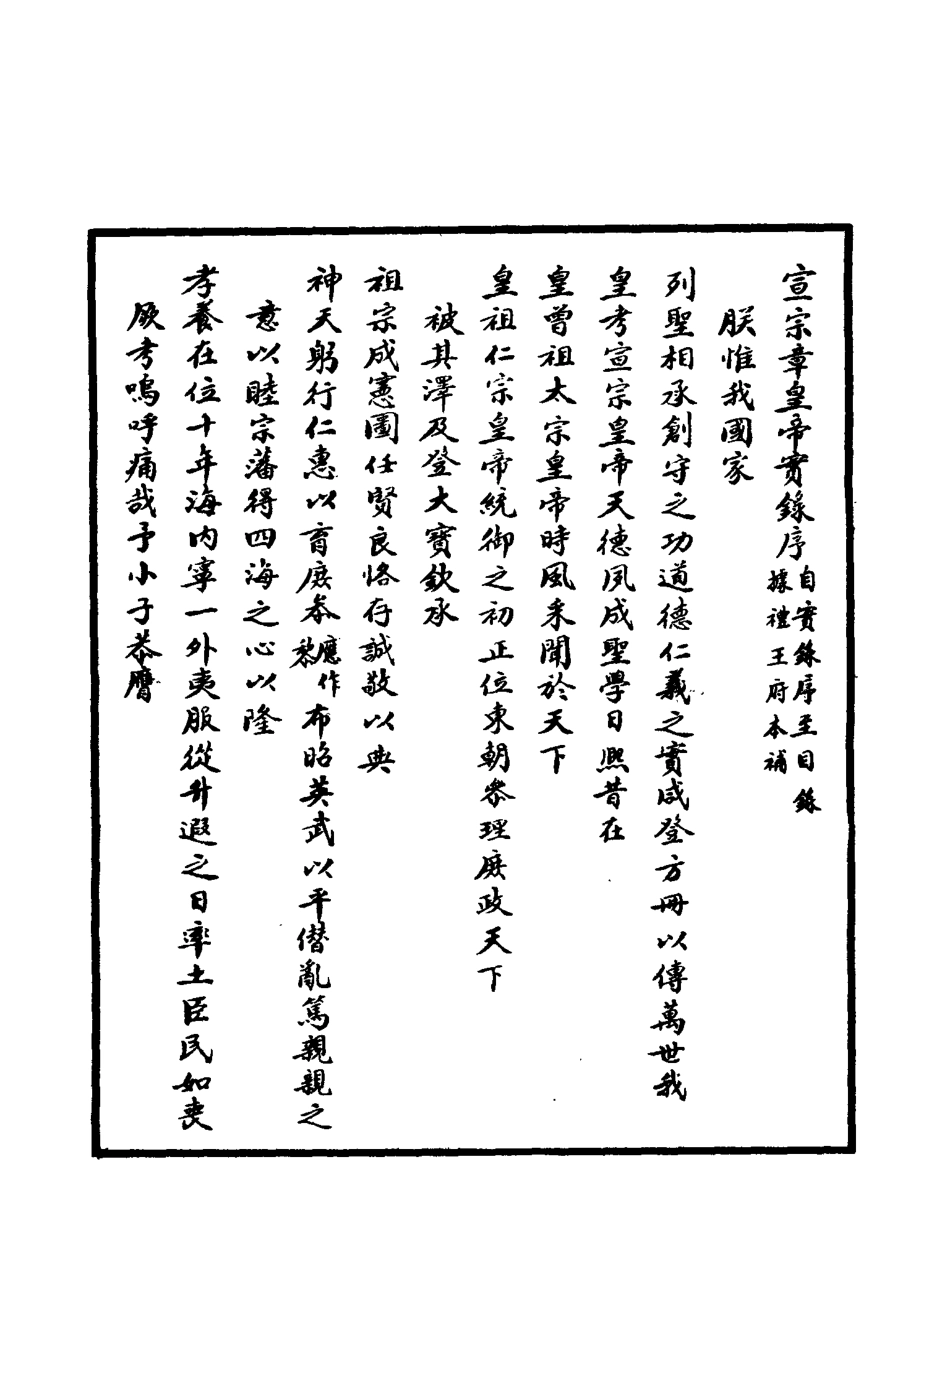 宣宗章皇帝實錄序自實錄序至目錄據禮王府本補
朕惟我國家
列聖相承創守之功道德仁義之實咸登方冊以傳萬世我
皇考宣宗皇帝天德夙成聖學日熙昔在
皇曾祖太宗皇帝時風采聞於天下
皇祖仁宗皇帝統御之初正位東朝叅理庶政天下
被其澤及登大寶欽承
祖宗成憲圖任賢良恪存誠敬以典
神天躬行仁惠以育庶叅應作黎布昭英武以平僣亂篤親親之
意以睦宗藩得四海之心以隆
孝養在位十年海內寧一外夷服從升遐之日率土臣民如喪
厥考嗚呼痛哉予小子恭膺